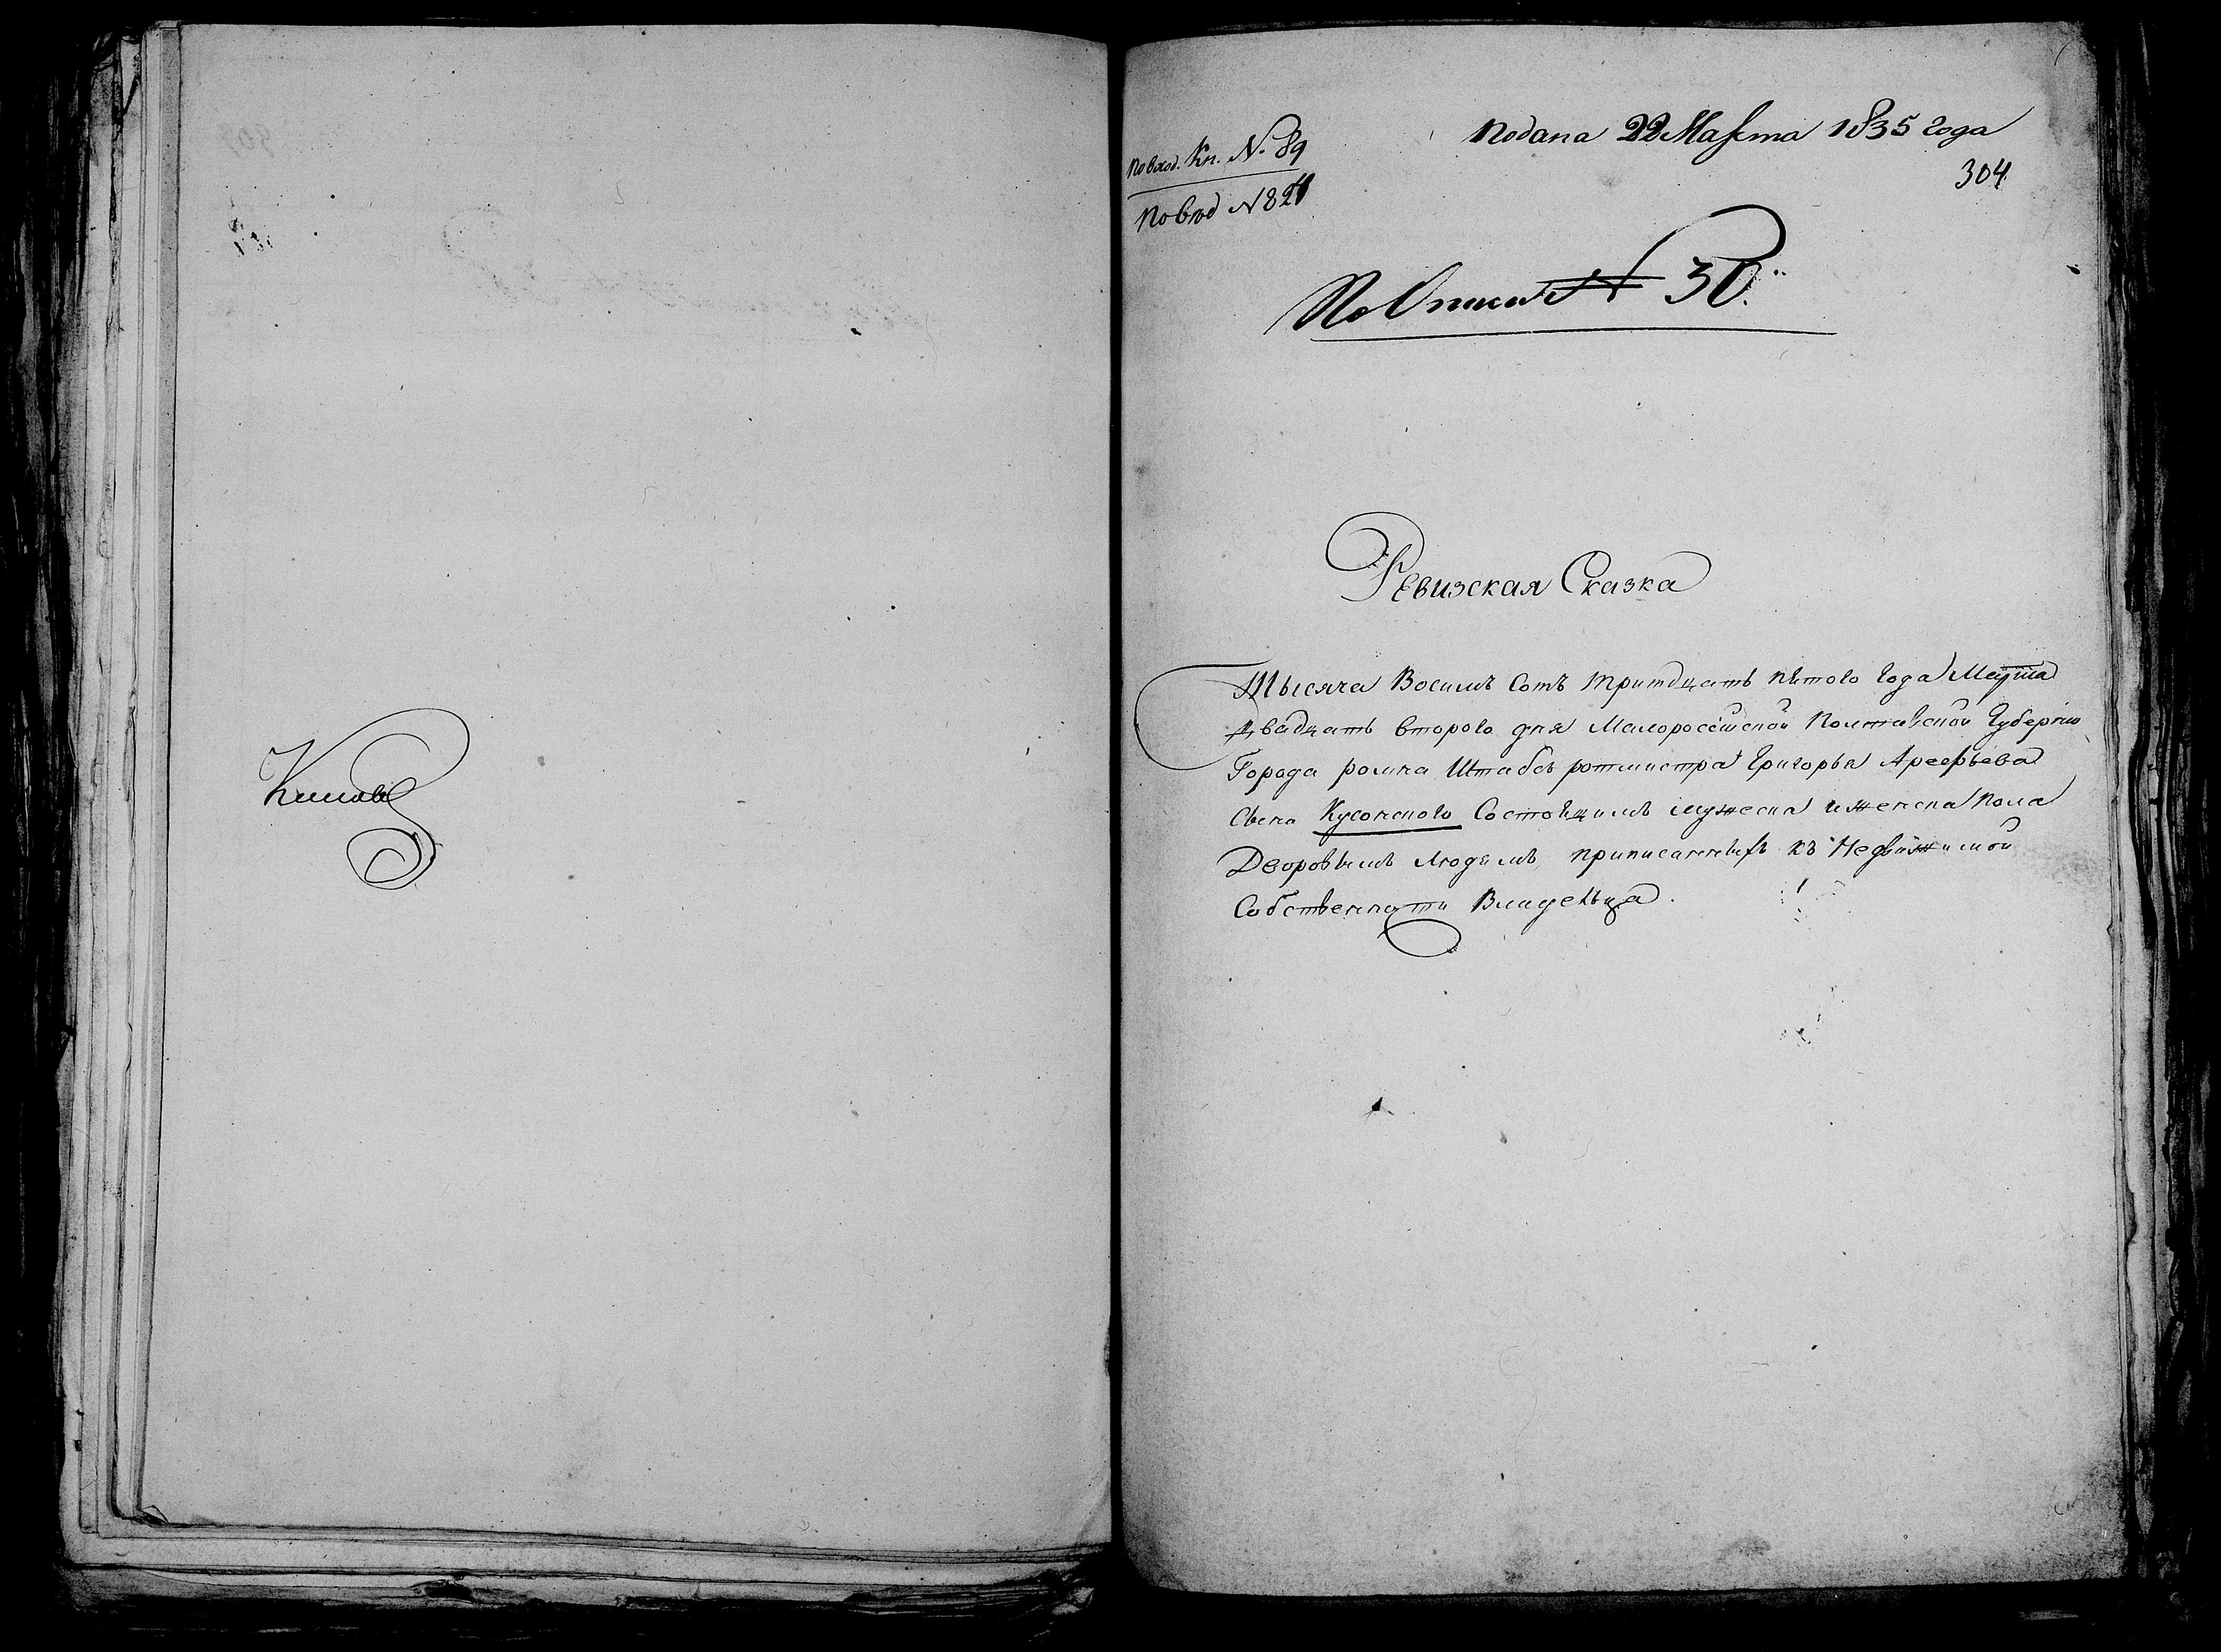 Подана 22 Марта 1835 года
По вход. Кн. № 89
304
По Описи № 30.
Ревизская Сказка
Тысяча Восимъ Сотъ тридцать пятого года Марта
двадцать второго дня Малоросѣйской Полтавской Губернии
Города ромна Штабсъ ротмистра Григорья
Сына Кусонского Состоящимъ мужеска и женска пола
Дворовымъ Людямъ приписаннымъ къ Недвижимой
Собственности Владельца.